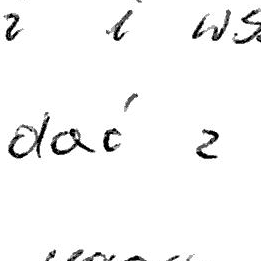 z i ws
dać z